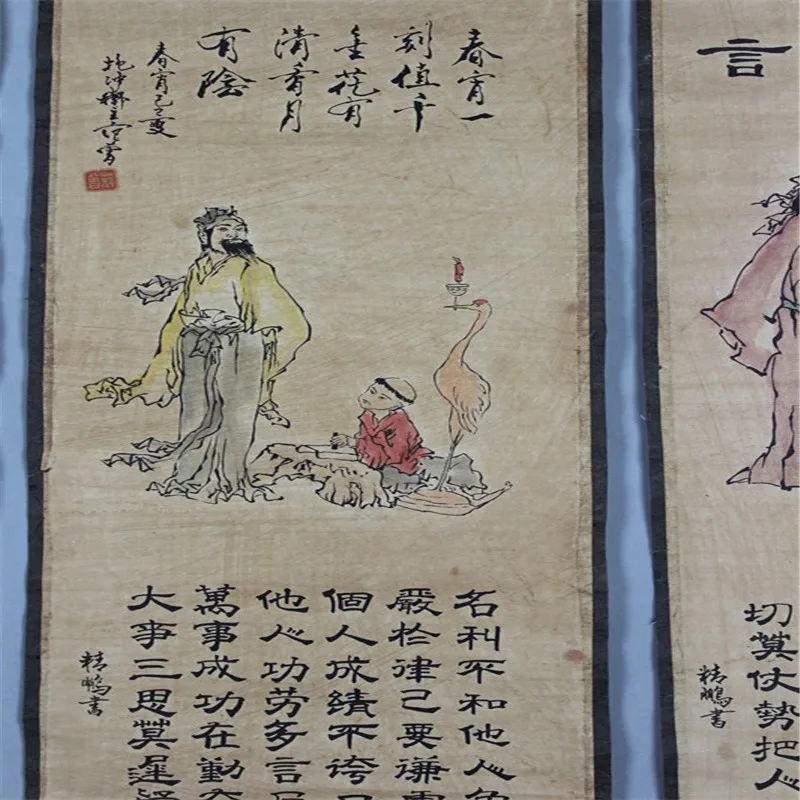 春宵一
刻值千
金花有
清香月
有陰
春宵己亥
抱冲斋主范曾
名利不和他人
嚴於律己要謙
個人成績不誇
他人功劳多言
萬事成功在勤
大事三思莫遲
精鵬書
言
切莫仗勢把人
精鵬書